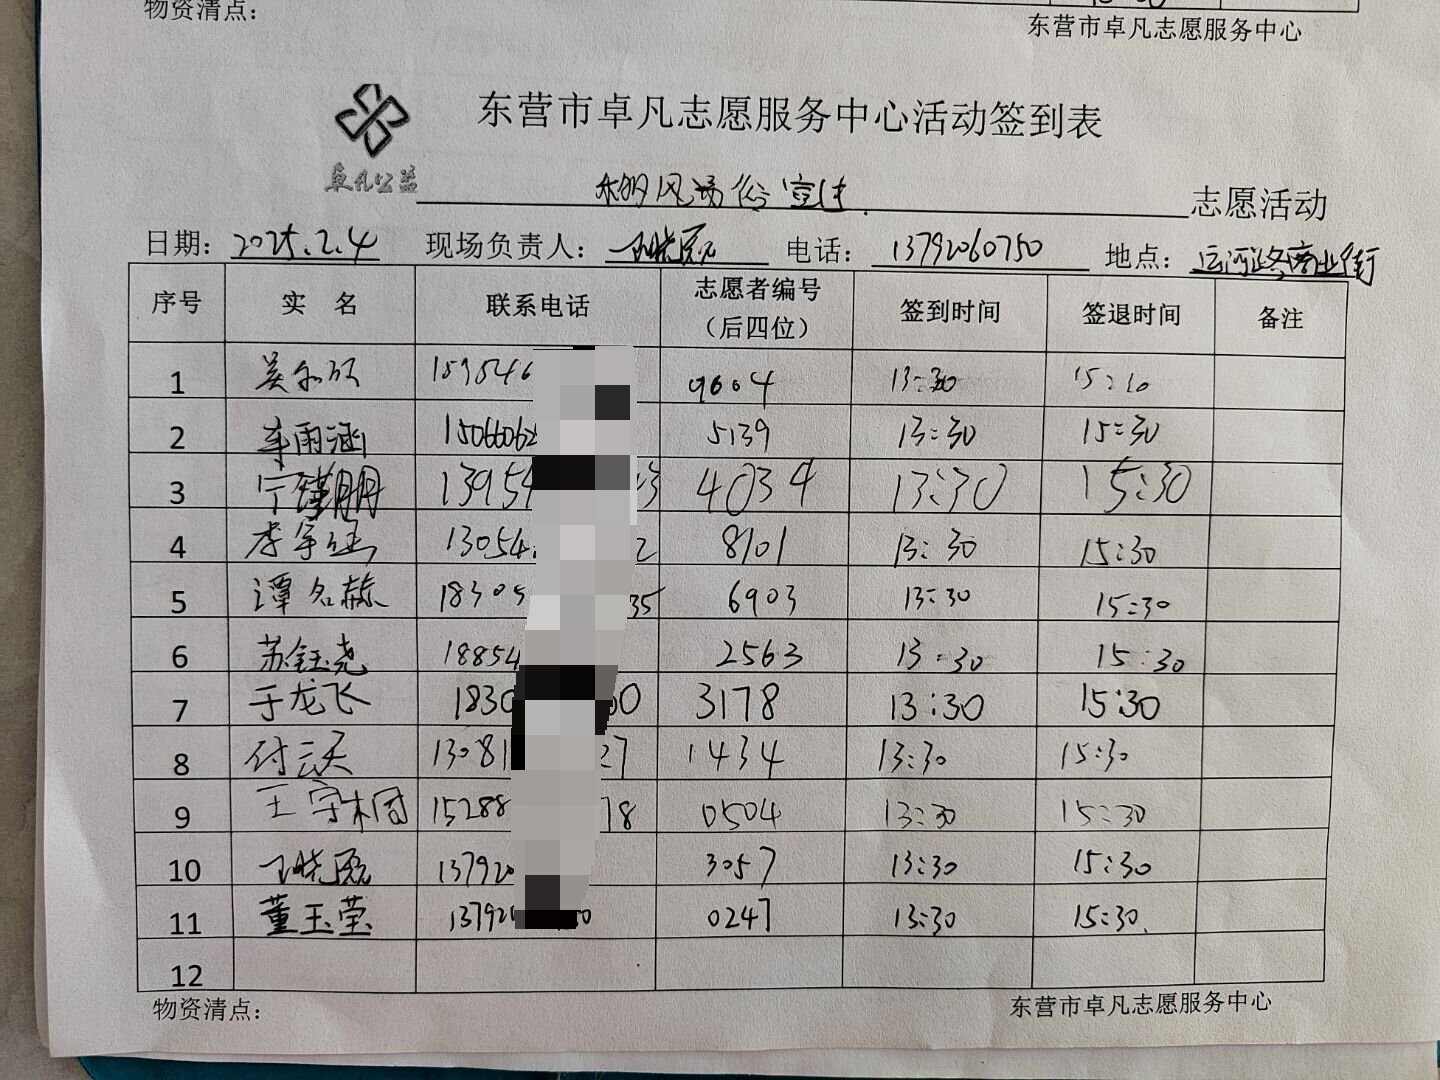 物资清点：
东营市卓凡志愿服务中心
东营市卓凡志愿服务中心活动签到表
卓凡公益
志愿活动
日期：2025.2.4 现场负责人： 电话：13792060750 地点：运河路商业街
序号 实 名 联系电话 志愿者编号（后四位） 签到时间 签退时间 备注
1 159546 0604 13:30 15:10
2 车雨涵 1506606 5139 13:30 15:30
3 宁瑾朋 13954 3 4034 13:30 15:30
4 李宇涵 13054 2 8101 13:30 15:30
5 谭名赫 18305 35 6903 13:30 15:30
6 苏钰尧 18854 2563 13:30 15:30
7 于龙飞 1830 60 3178 13:30 15:30
8 付云天 13081 27 1434 13:30 15:30
9 王守桐 15288 78 0504 13:30 15:30
10 137920 3057 13:30 15:30
11 董玉莹 13792 50 0247 13:30 15:30
12
物资清点：
东营市卓凡志愿服务中心